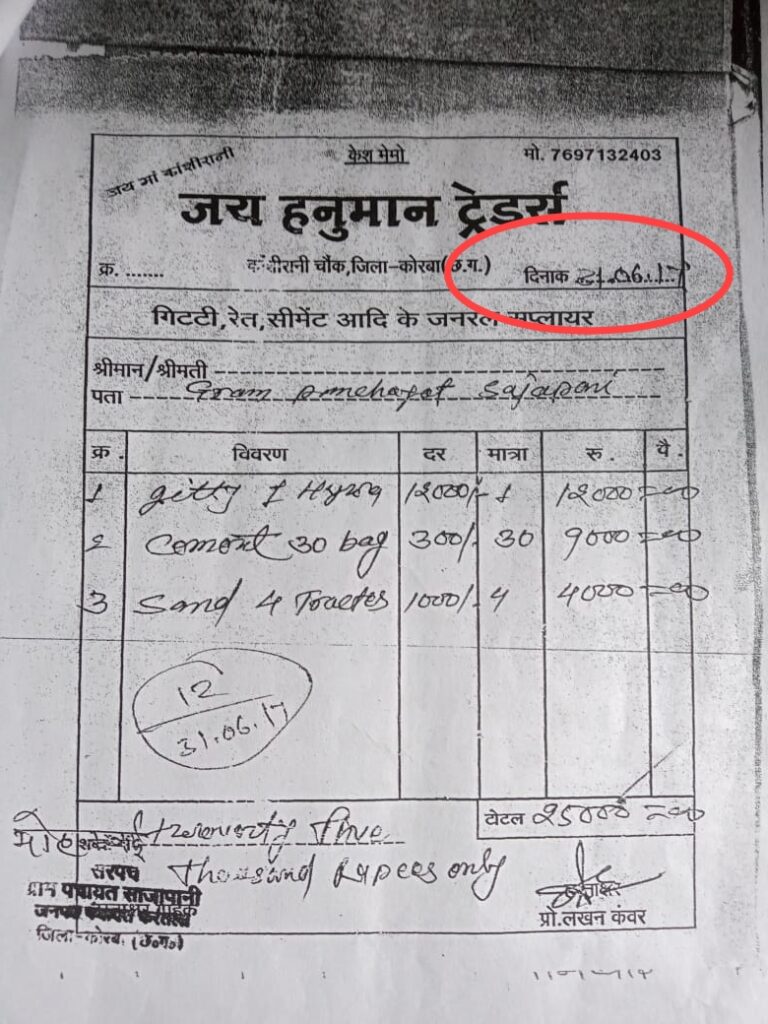 जय मां कांशीरानी
केश मेमो
मो. 7697132403
जय हनुमान ट्रेडर्स
क्र. .......
कांशीरानी चौंक,जिला-कोरबा(छ.ग.)
दिनाक 31.06.17
गिटटी,रेत,सीमेंट आदि के जनरल सप्लायर
श्रीमान/श्रीमती
पता Gram
क्र. विवरण दर मात्रा रु. पै.
1 gitty 1 12000/- 1 12000=00
2 Cement 30 bag 300/- 30 9000=00
3 Sand 4 1000/- 4 4000=00
12
31.06.17
टोटल 25000=00
Five
Thousand Rupees only
सरपंच
ग्राम पंचायत साजापानी
जिला-कोरबा (छ०ग०)
प्रो.लखन कंवर